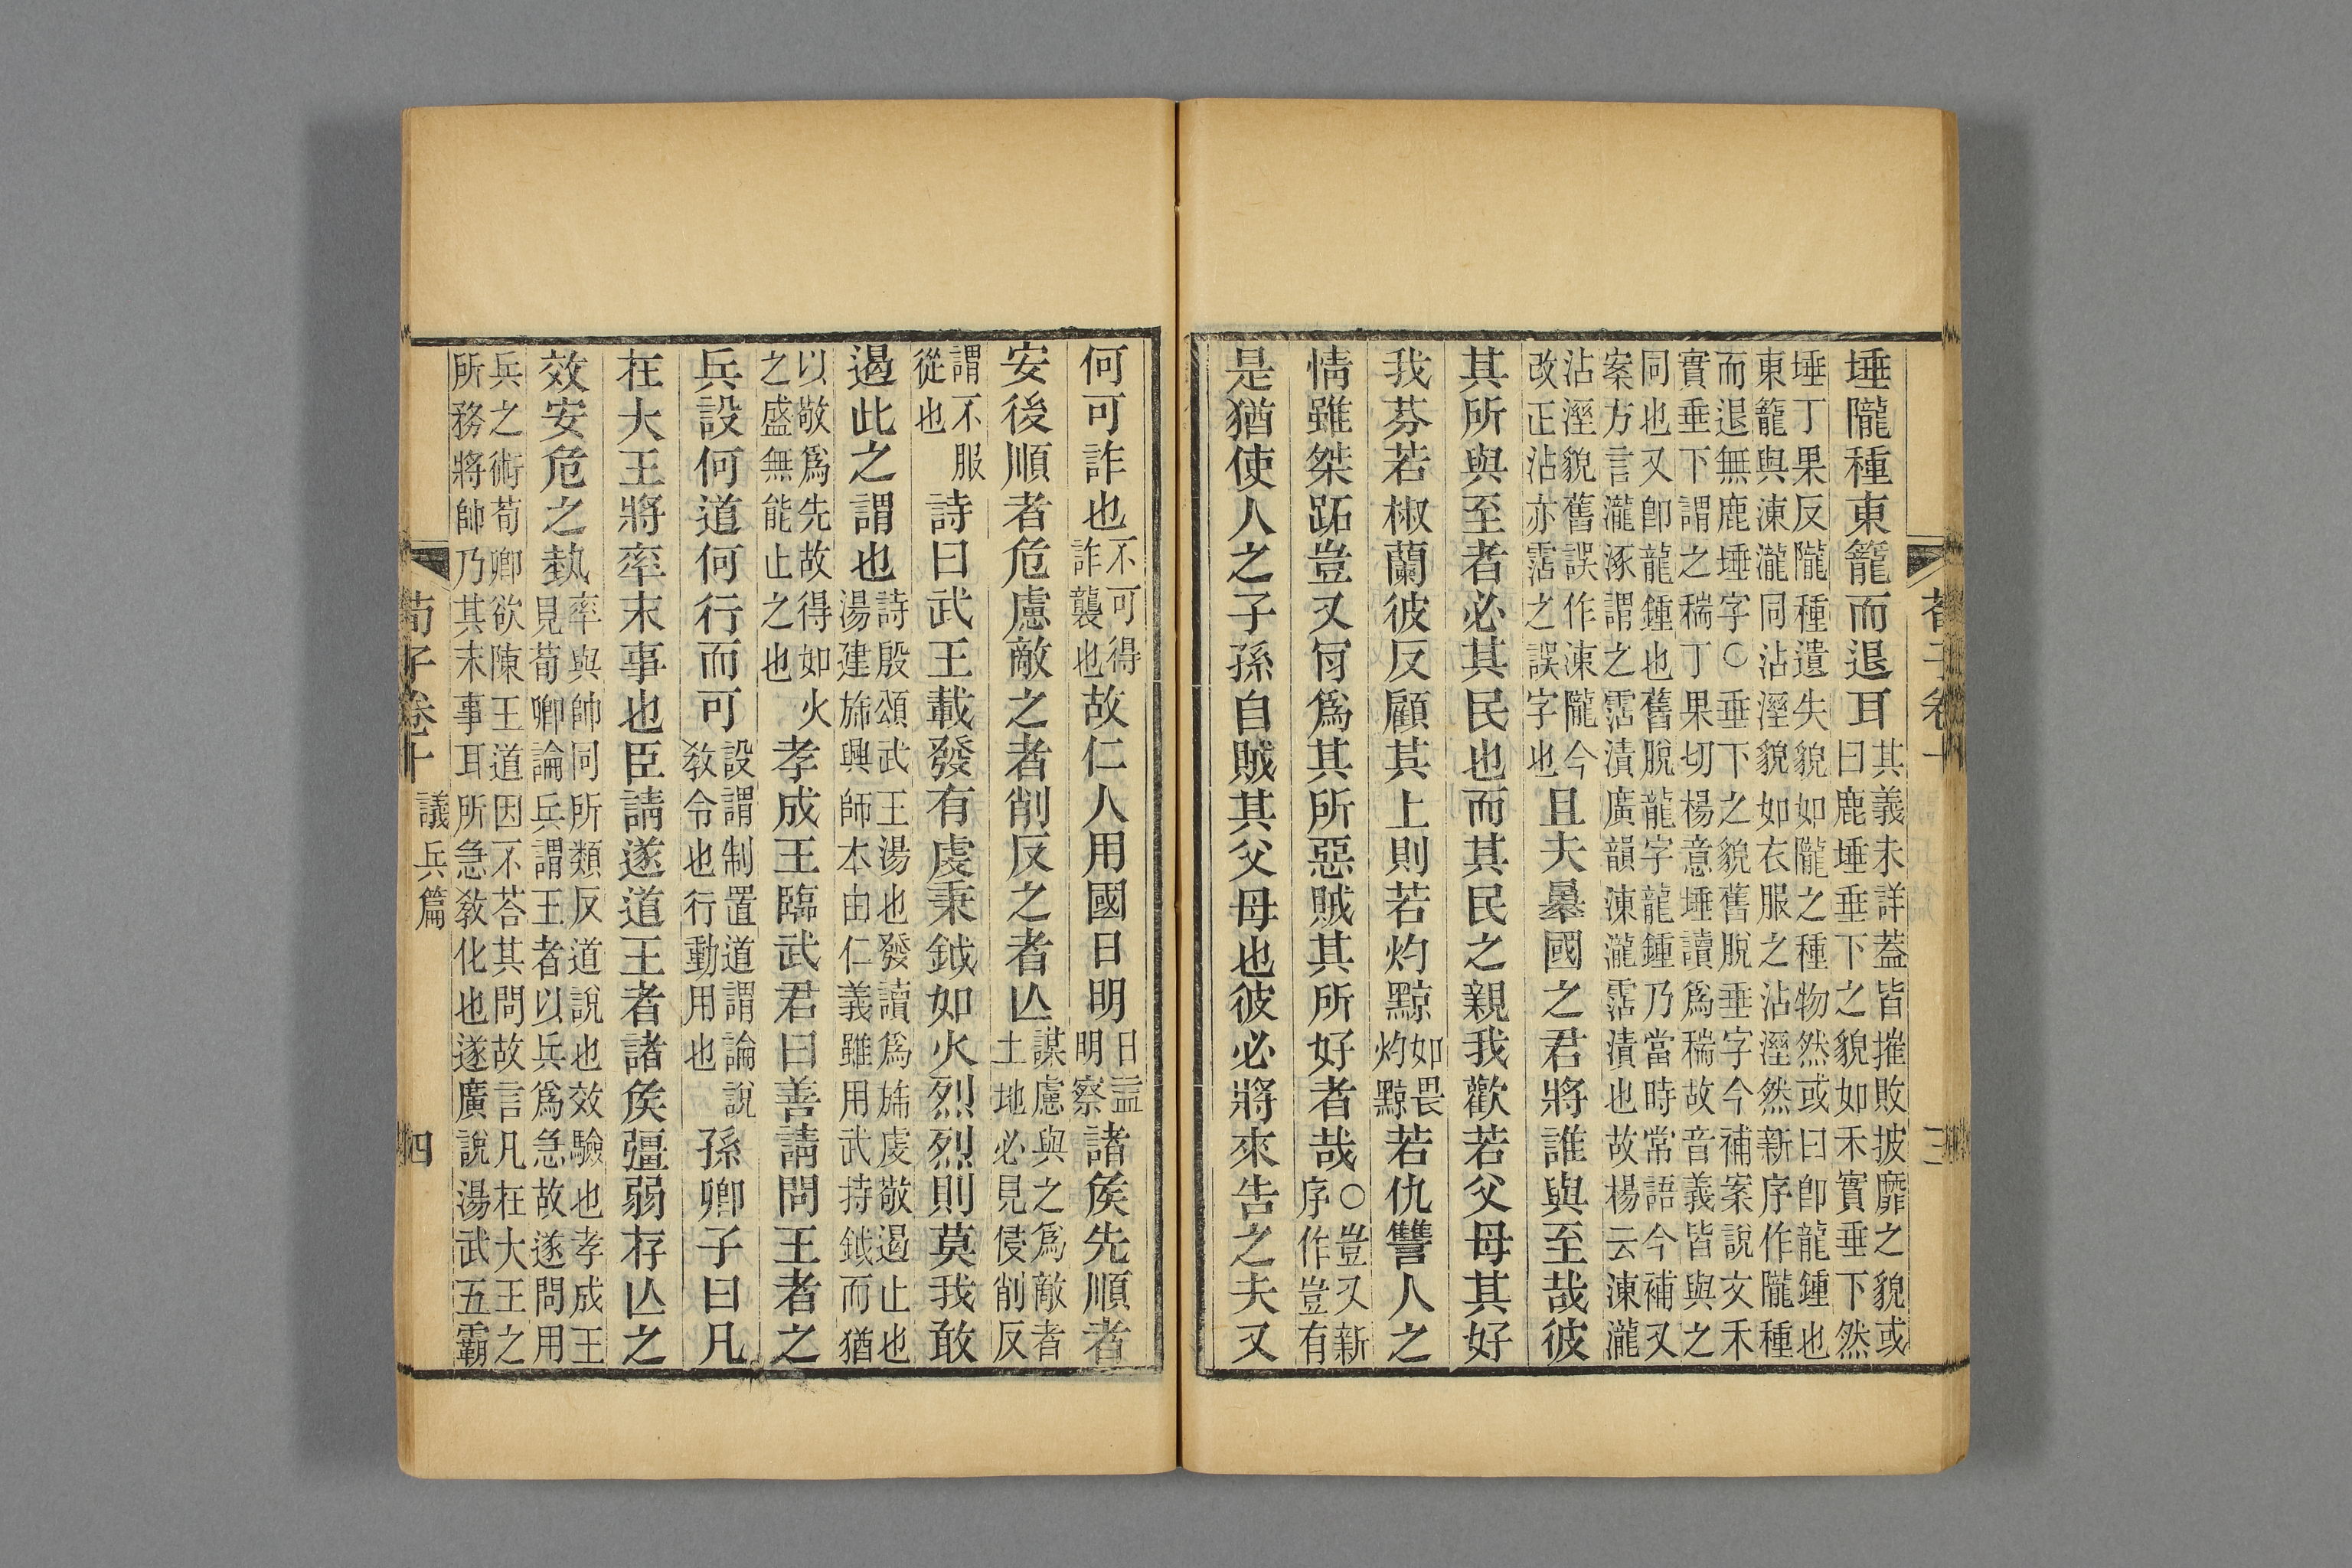 荀子卷十 三
埵隴種東籠而退耳其義未詳蓋皆摧敗披靡之貌或
曰鹿埵垂下之貌如禾實垂下然
埵丁果反隴種遺失貌如隴之種物然或曰卽龍鍾也
東籠與涷瀧同沾溼貌如衣服之沾溼然新序作隴種
而退無鹿埵字○垂下之貌舊脫垂字今補案說文禾
實垂下謂之𥠄丁果切楊意埵讀爲𥠄故音義皆與之
同也又卽龍鍾也舊脫龍字龍鍾乃當時常語今補又
案方言瀧涿謂之霑漬廣韻涷瀧霑漬也故楊云涷瀧
沾溼貌舊誤作涷隴今
改正沾亦霑之誤字也且夫暴國之君將誰與至哉彼
其所與至者必其民也而其民之親我歡若父母其好
我芬若椒蘭彼反顧其上則若灼黥如畏灼黥若仇讐人之
情雖桀跖豈又肎爲其所惡賊其所好者哉○豈又新序作豈有
是猶使人之子孫自賊其父母也彼必將來告之夫又
何可詐也不可得詐襲也故仁人用國日明日益明察諸矦先順者
安後順者危慮敵之者削反之者亾謀慮與之爲敵者土地必見侵削反
謂不服從也詩曰武王載發有虔秉鉞如火烈烈則莫我敢
遏此之謂也詩殷頌武王湯也發讀爲旆虔敬遏止也
湯建旆興師本由仁義雖用武持鉞而猶
以敬爲先故得如火
之盛無能止之也孝成王臨武君曰善請問王者之
兵設何道何行而可設謂制置道謂論說教令也行動用也孫卿子曰凡
在大王將率末事也臣請遂道王者諸矦彊弱存亾之
效安危之埶率與帥同所類反道說也效驗也孝成王
見荀卿論兵謂王者以兵爲急故遂問用
兵之術荀卿欲陳王道因不荅其問故言凡在大王之
所務將帥乃其末事耳所急敎化也遂廣說湯武五霸
荀子卷十 議兵篇 四